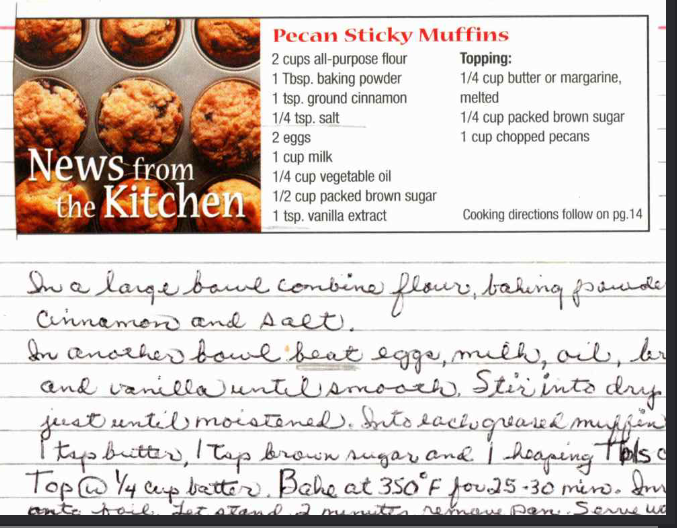 Pecan Sticky Muffins
2 cups all-purpose flour
1 Tbsp. baking powder
1 tsp. ground cinnamon
1/4 tsp. salt
2 eggs
1 cup milk
1/4 cup vegetable oil
1/2 cup packed brown sugar
1 tsp. vanilla extract
Topping:
1/4 cup butter or margarine,
melted
1/4 cup packed brown sugar
1 cup chopped pecans
Cooking directions follow on pg.14
News from
the Kitchen
In a large bowl combine flour, baking powde
cinnamon and salt.
In another bowl beat eggs, milk, oil, br
and vanilla until smooth. Stir into dry
just until moistened. Into each greased muffin
1 tsp butter, 1 tsp brown sugar and 1 heaping Tbls
Top 1/4 cup batter. Bake at 350°F for 25-30 min.
onto foil. Let stand 2 minutes remove pan. Serve